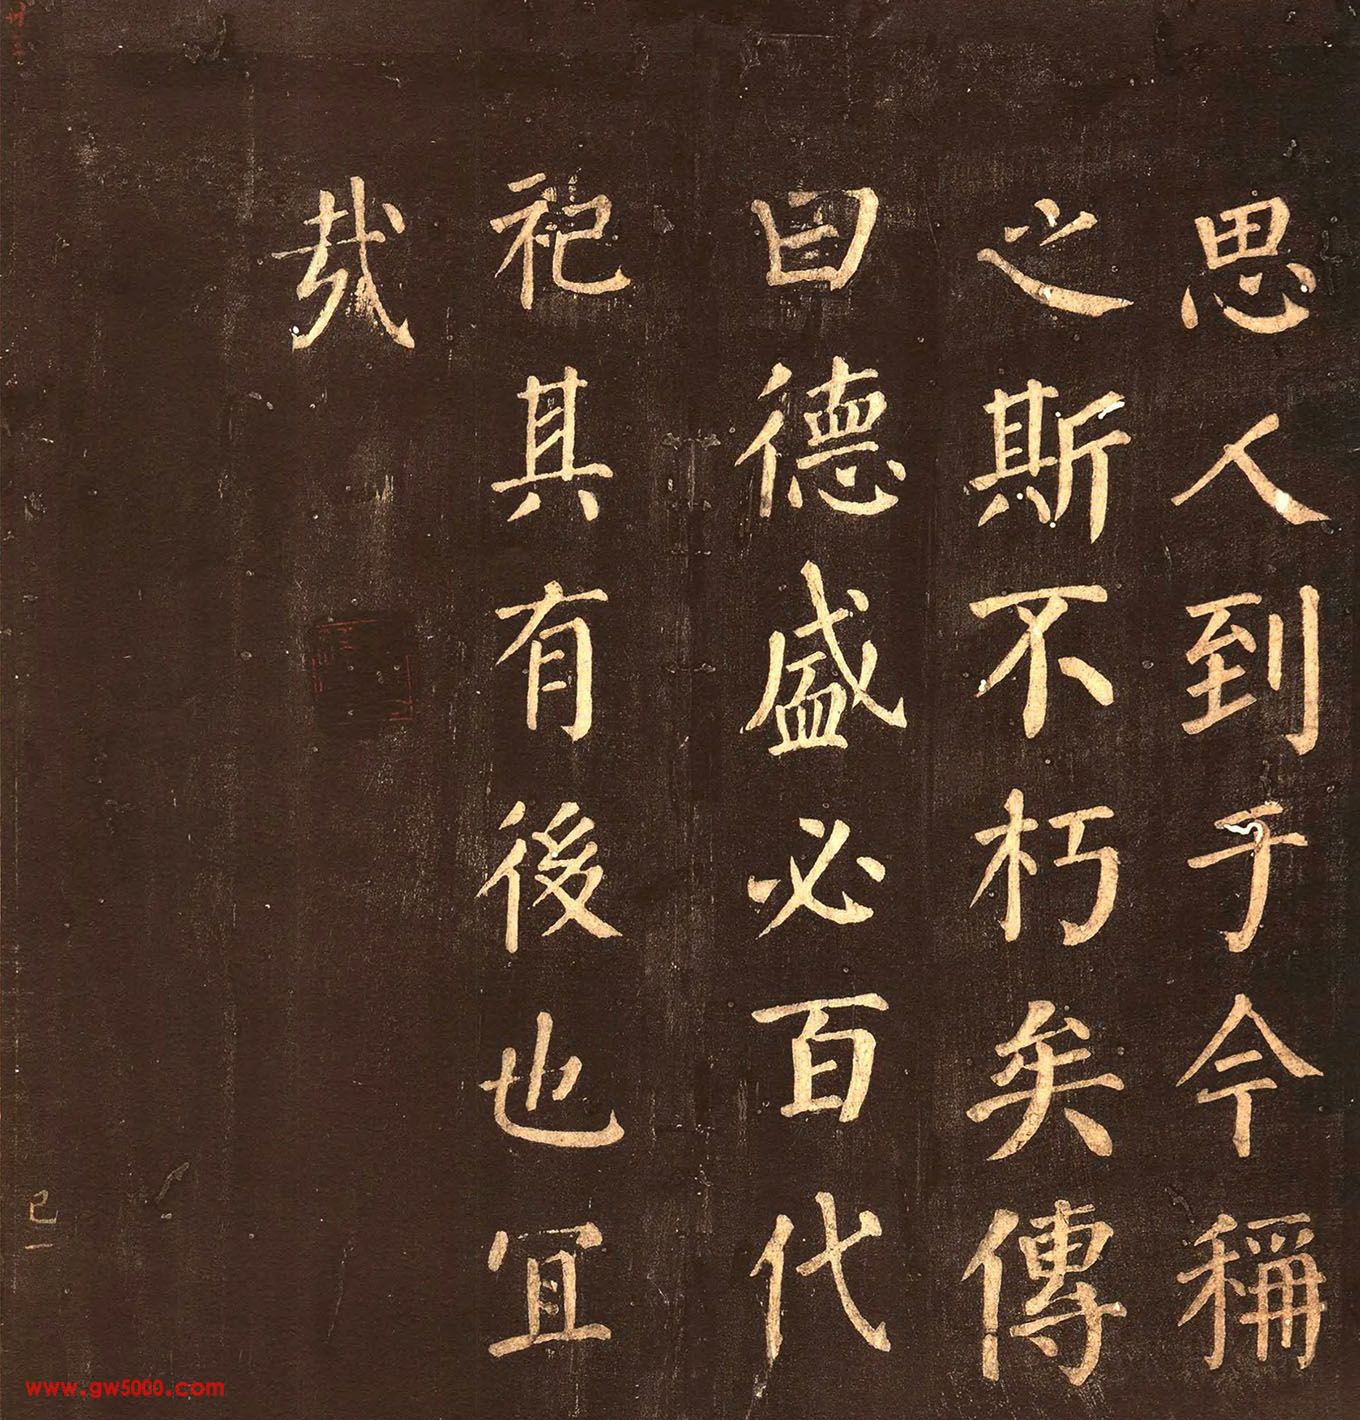 思人到于今稱
之斯不朽矣傳
曰德盛必百代
祀其有後也冝
哉
已一
www.gw5000.com